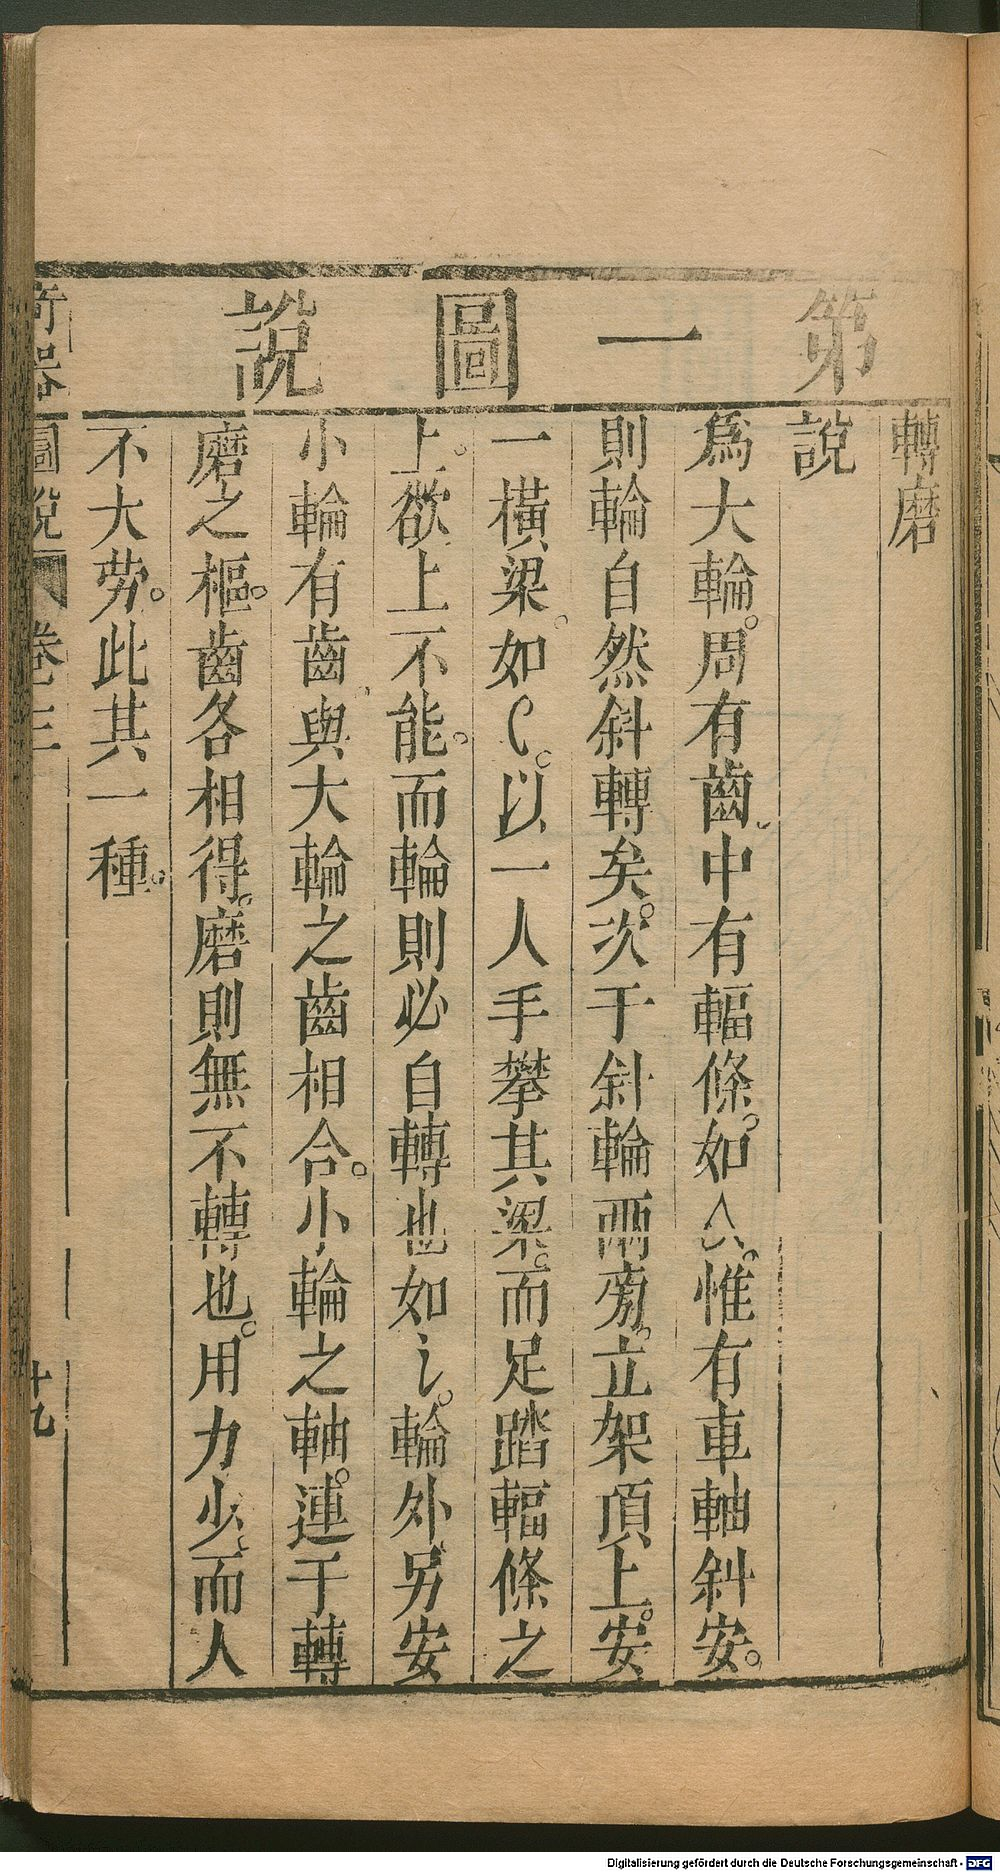 第一圖說
轉磨
說
爲大輪。周有齒。中有輻條。如人。惟有車軸斜安。
則輪自然斜轉矣。次于斜輪兩旁。立架頂上。安
一橫梁。如乀。以一人手攀其梁。而足踏輻條之
上。欲上不能。而輪則必自轉也如乚。輪外另安
小輪有齒。與大輪之齒相合。小輪之軸。連于轉
磨之樞。齒各相得。磨則無不轉也。用力少。而人
不大勞。此其一種。
奇器圖說 卷三 十九
Digitalisierung gefördert durch die Deutsche Forschungsgemeinschaft - DFG